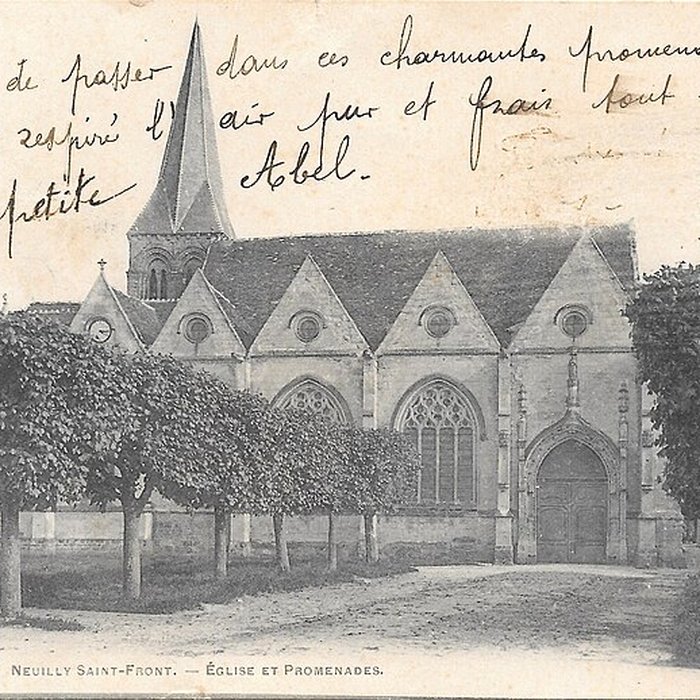 de passer dans ces charmantes promena
respiré l'air pur et frais tout
petite Abel.
NEUILLY SAINT-FRONT. — ÉGLISE ET PROMENADES.